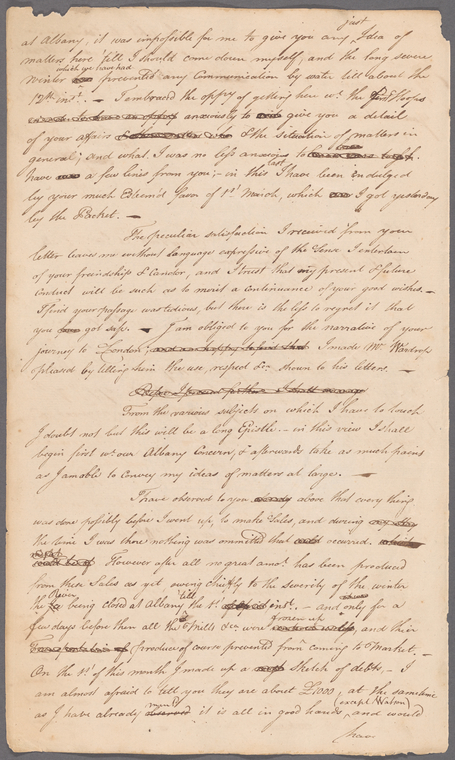 just
at Albany, it was impossible for me to give you any Idea of
matters here 'till I should come down myself, and the long severe
which we have had
Winter prevented any Communication by water till about the
12th inst. — I embraced the oppy of getting here wt. the first Sloops
anxiously to give you a detail
of your affairs & the situation of matters in
general; and what I was no less anxious to
have a few lines from you;– in this last I have been indulged
by your much Esteem'd favor of 1st March, which I got yesterday
by the Packet. —
The peculiar satisfaction I received from your
letter leaves me without language expressive of the Sense I entertain
of your friendship & Candor, and I trust that my present & future
Conduct will be such as to merit a continuance of your good wishes. —
I find your passage was tedious, but there is the less to regret it that
you got safe. — I am obliged to you for the narrative of your
journey to London; and am happy to find that I made Mr.
pleased by letting him the use, respect &ca shown to his letters. —
Before I proceed further I shall
From the various subjects on which I have to touch
I doubt not but this will be a long Epistle. — in this view I shall
begin first wt. our Albany Concern, & afterwards take as much pains
as I am able to Convey my ideas of matters at large. —
I have observed to you above that every thing
was done possibly before I went up, to make Sales, and during my stay
the time I was there nothing was ommitted that occurred.
However after all no great amot. has been produced
from these Sales as yet owing chiefly to the severity of the winter
River till
the being closed at Albany the 1st inst. — and only for a
few days before then all the Mills &ca were frozen up, and their
produce of course prevented from coming to Market. —
On the 1st of this month I made up a Sketch of debts, — I
am almost afraid to tell you they are about £1000, at the same time
(except Watson)
as I have already it is all in good hands, and would
have